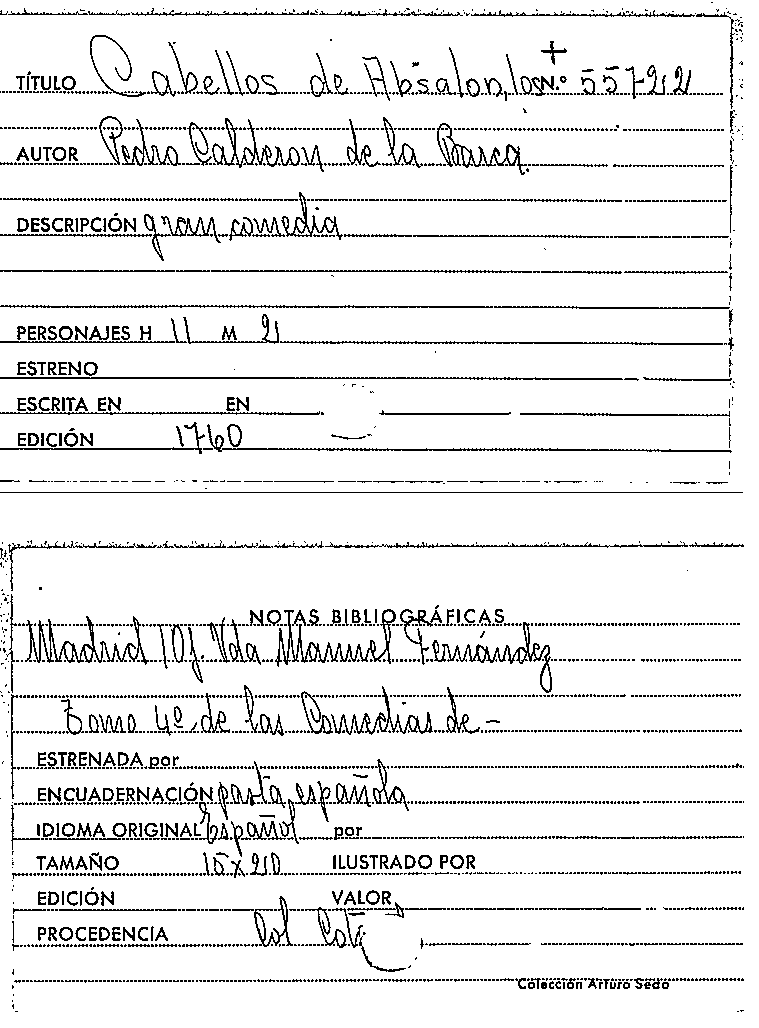 TÍTULO Cabellos de Absalon, los N.º 557-22
AUTOR Pedro Calderon de la Barca.
DESCRIPCIÓN gran comedia
PERSONAJES H 11 M 2
ESTRENO
ESCRITA EN EN
EDICIÓN 1760
NOTAS BIBLIOGRÁFICAS
Madrid Of. Vda Manuel Fernández
Tomo 4º de las Comedias de -
ESTRENADA por
ENCUADERNACIÓN pasta española
IDIOMA ORIGINAL Español por
TAMAÑO 15x20 ILUSTRADO POR
EDICIÓN VALOR
PROCEDENCIA Col
Colección Arturo Sedó